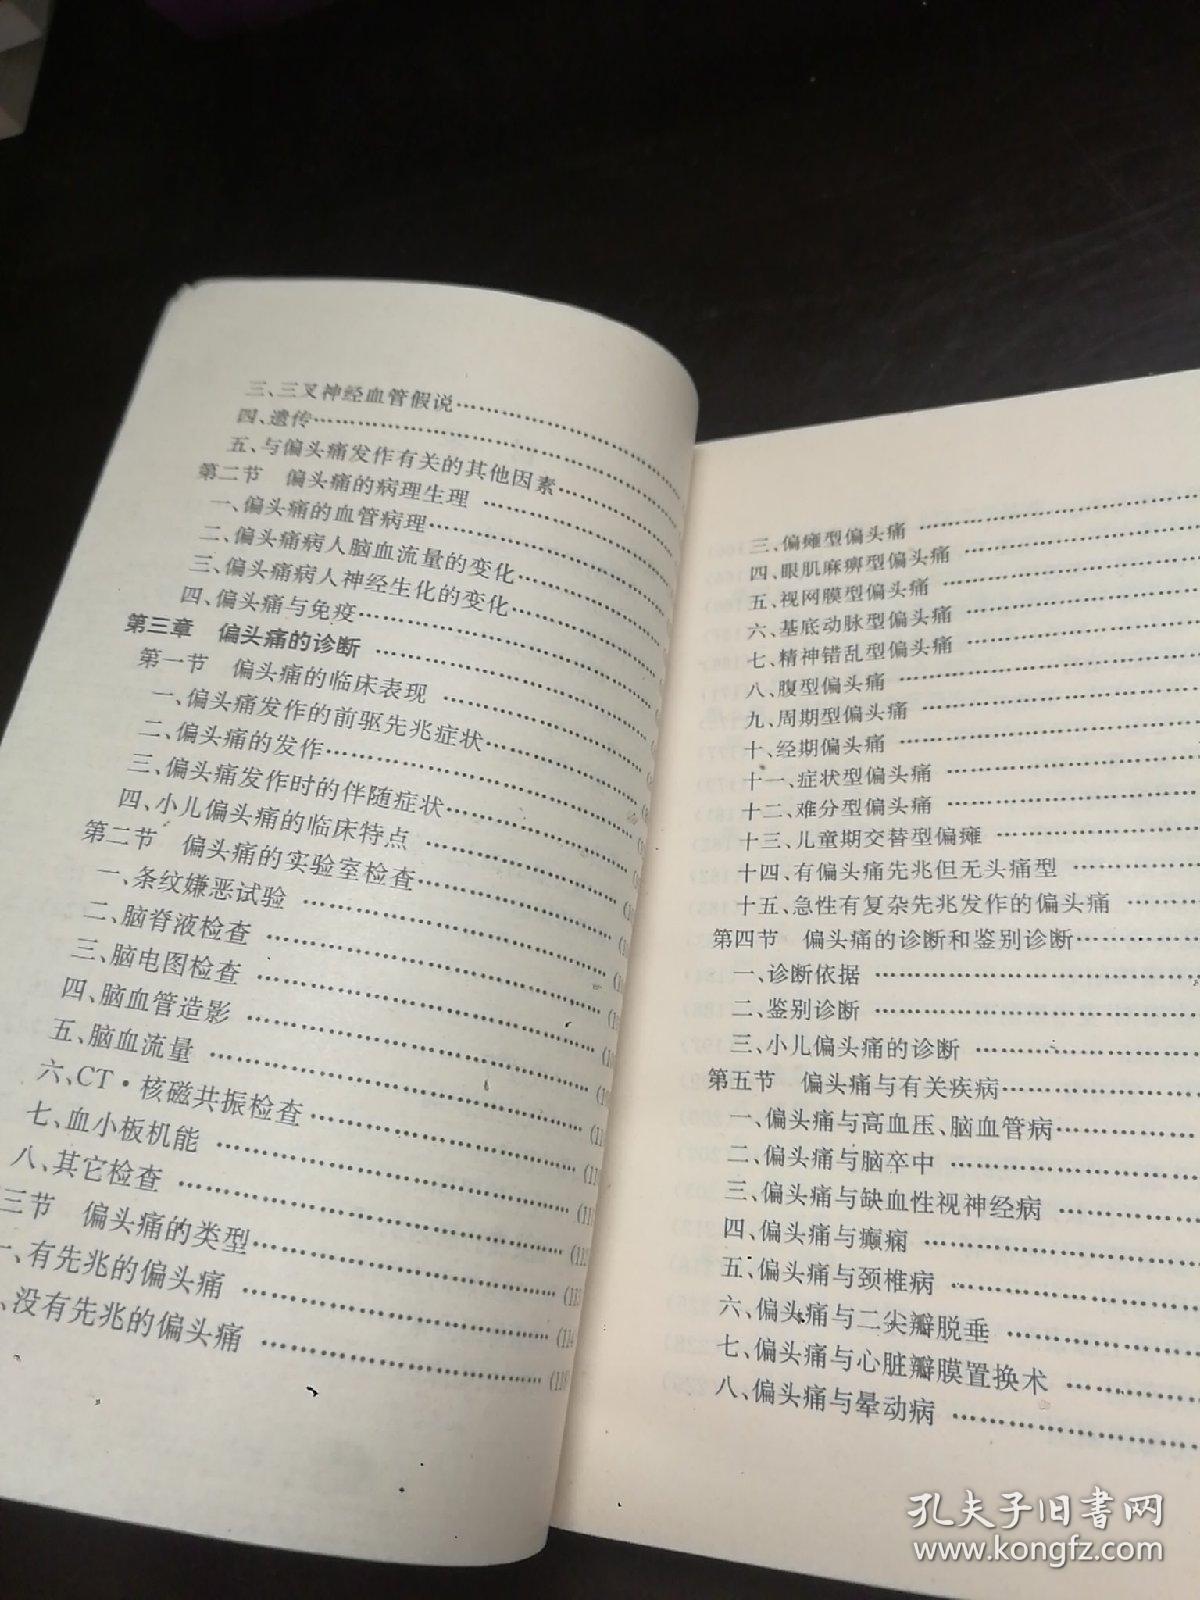 三、三叉神经血管假说
四、遗传
五、与偏头痛发作有关的其他因素
第二节 偏头痛的病理生理
一、偏头痛的血管病理
二、偏头痛病人脑血流量的变化
三、偏头痛病人神经生化的变化
四、偏头痛与免疫
第三章 偏头痛的诊断
第一节 偏头痛的临床表现
一、偏头痛发作的前驱先兆症状
二、偏头痛的发作
三、偏头痛发作时的伴随症状
四、小儿偏头痛的临床特点
第二节 偏头痛的实验室检查
一、条纹嫌恶试验
二、脑脊液检查
三、脑电图检查
四、脑血管造影
五、脑血流量
六、CT·核磁共振检查
七、血小板机能
八、其它检查
三节 偏头痛的类型
一、有先兆的偏头痛
、没有先兆的偏头痛
三、偏瘫型偏头痛
四、眼肌麻痹型偏头痛
五、视网膜型偏头痛
六、基底动脉型偏头痛
七、精神错乱型偏头痛
八、腹型偏头痛
九、周期型偏头痛
十、经期偏头痛
十一、症状型偏头痛
十二、难分型偏头痛
十三、儿童期交替型偏瘫
十四、有偏头痛先兆但无头痛型
十五、急性有复杂先兆发作的偏头痛
第四节 偏头痛的诊断和鉴别诊断
一、诊断依据
二、鉴别诊断
三、小儿偏头痛的诊断
第五节 偏头痛与有关疾病
一、偏头痛与高血压、脑血管病
二、偏头痛与脑卒中
三、偏头痛与缺血性视神经病
四、偏头痛与癫痫
五、偏头痛与颈椎病
六、偏头痛与二尖瓣脱垂
七、偏头痛与心脏瓣膜置换术
八、偏头痛与晕动病
孔夫子旧书网
www.kongfz.com